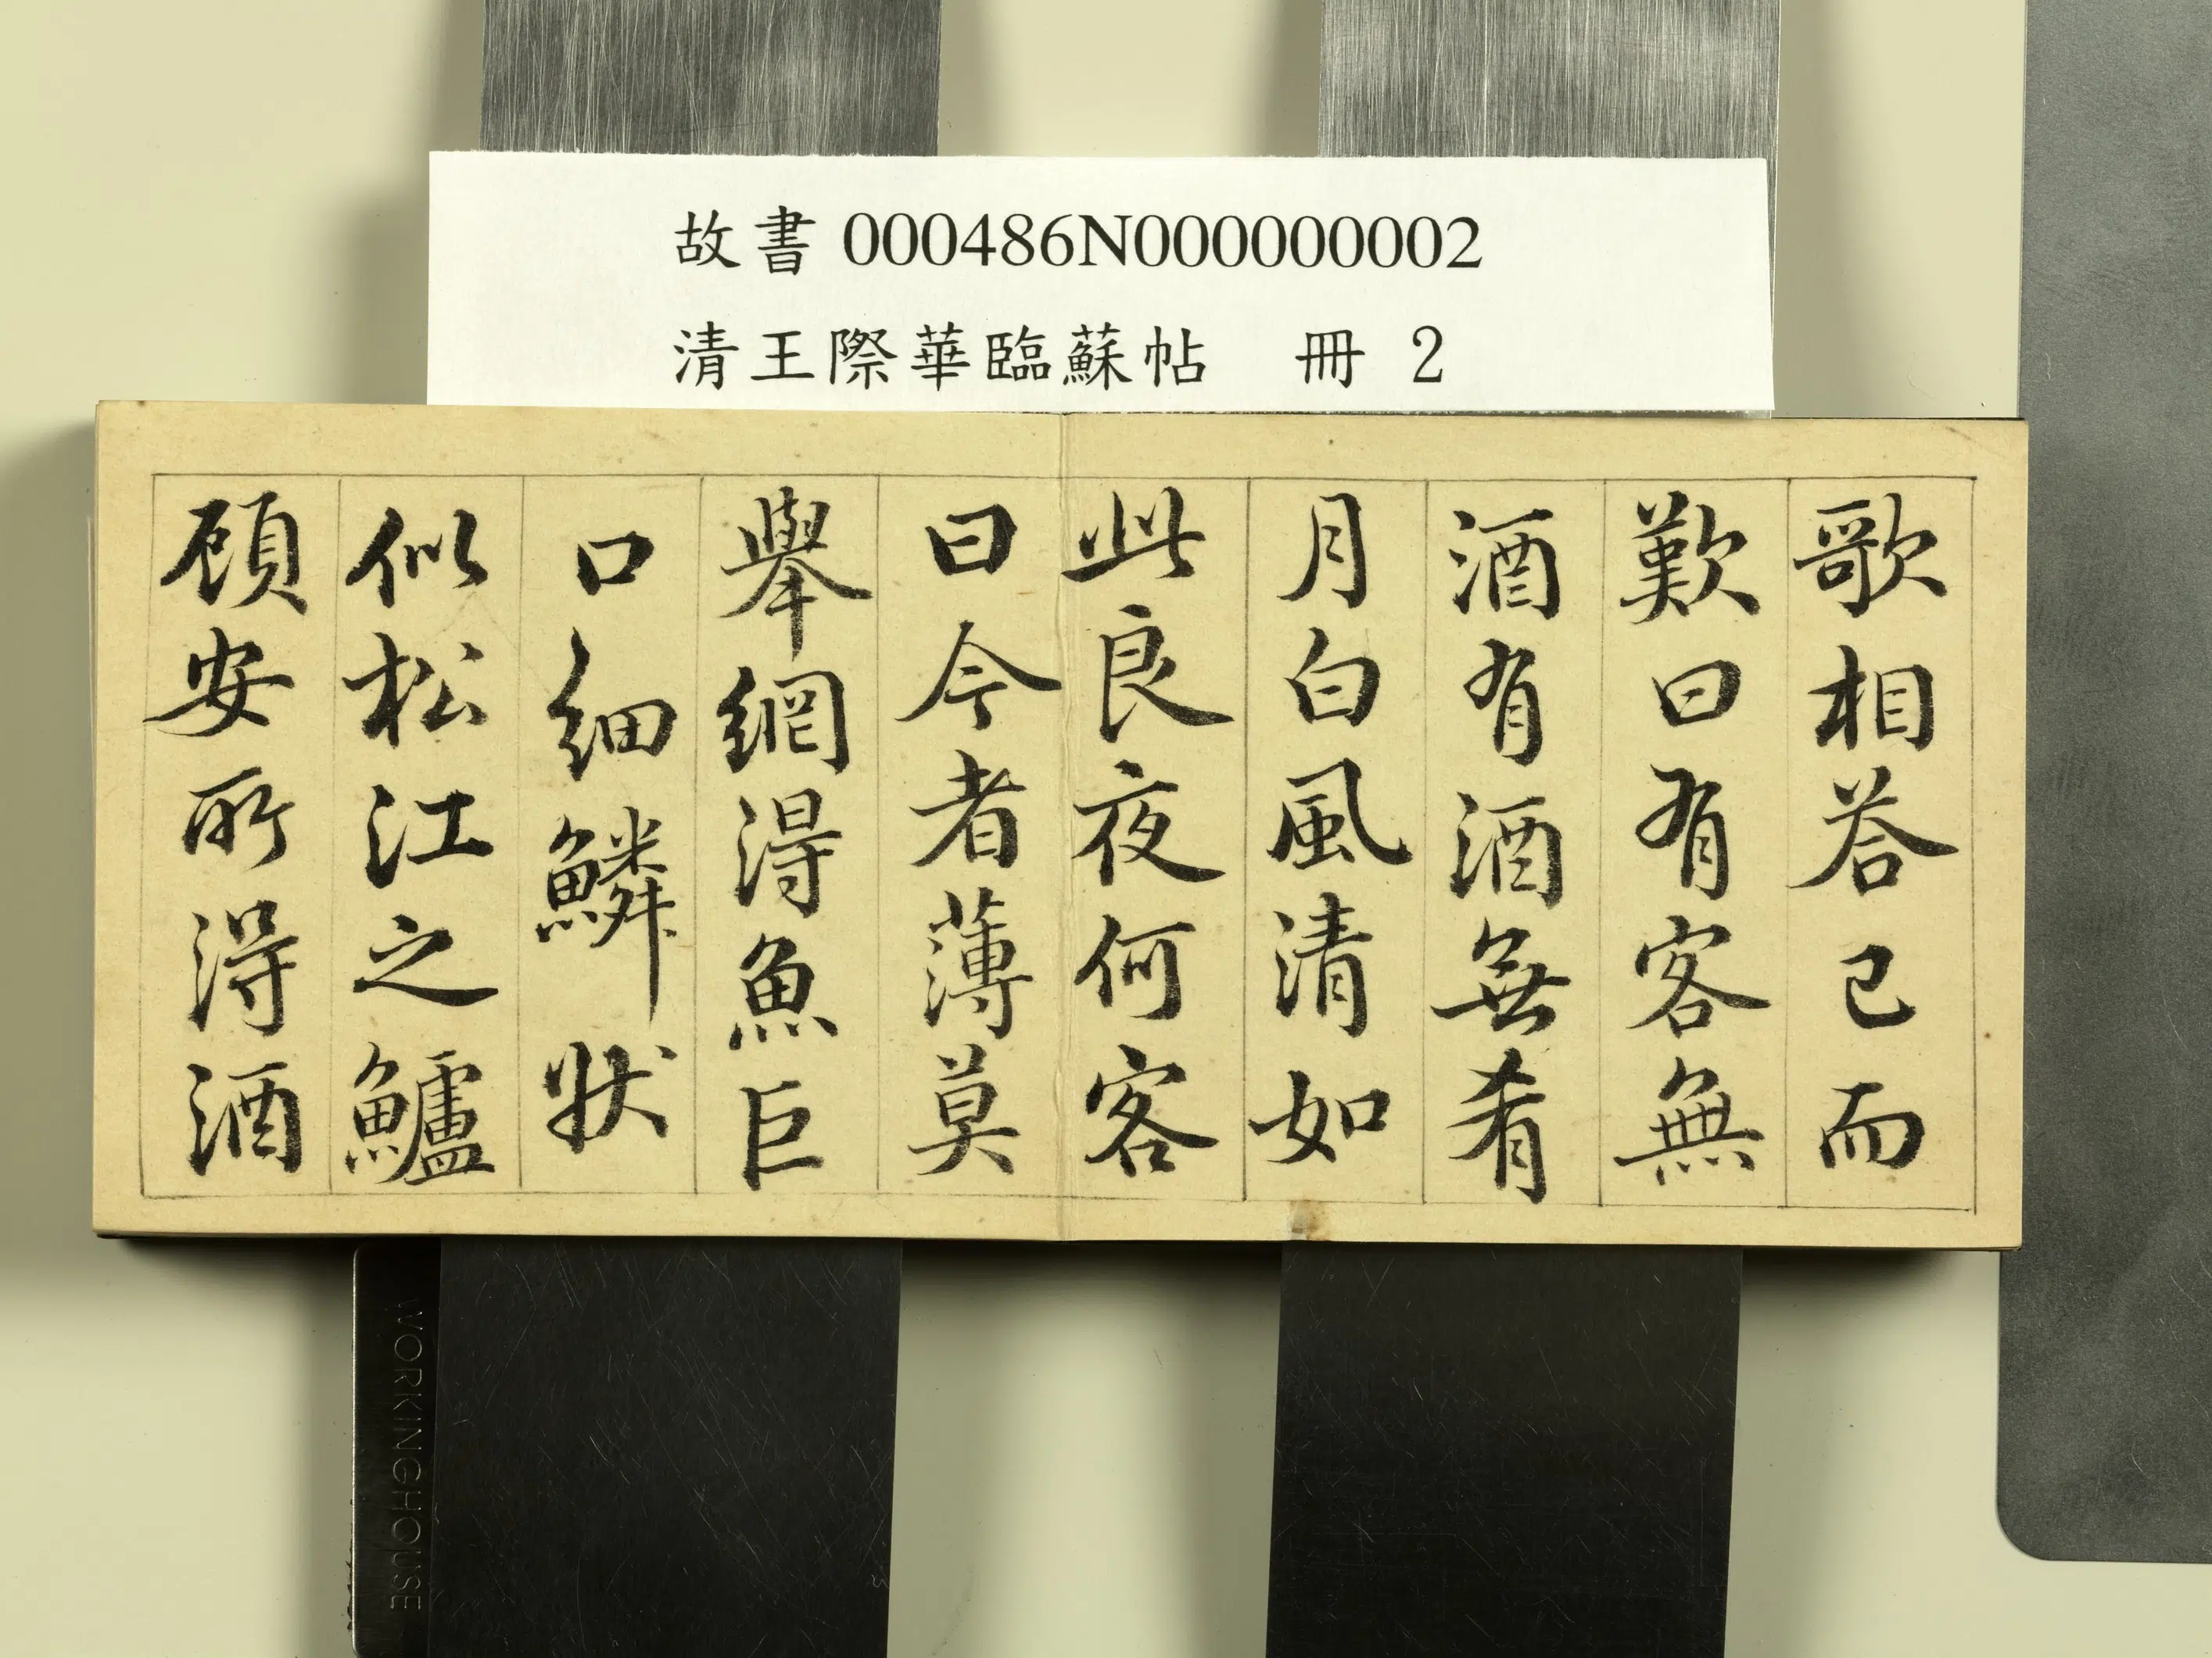 故書 000486N000000002
清王際華臨蘇帖 冊 2
歌相荅已而
歎曰有客無
酒有酒無肴
月白風清如
此良夜何客
曰今者薄莫
舉網得魚巨
口細鱗狀
似松江之鱸
顧安所得酒
WORKINGHOUSE